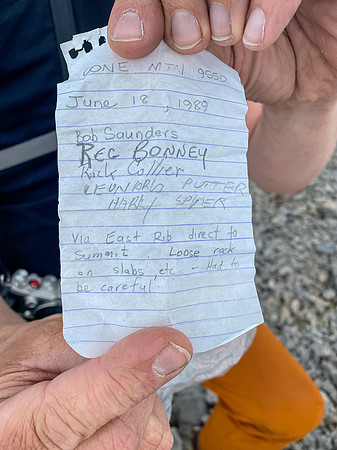 CONE MTN 9550
June 18, 1989
Bob Saunders
REG BONNEY
Rick Collier
LEONARD POTTER
HARRY SPIER
Via East Rib direct to
Summit. Loose rock
on slabs etc - Had to
be careful.